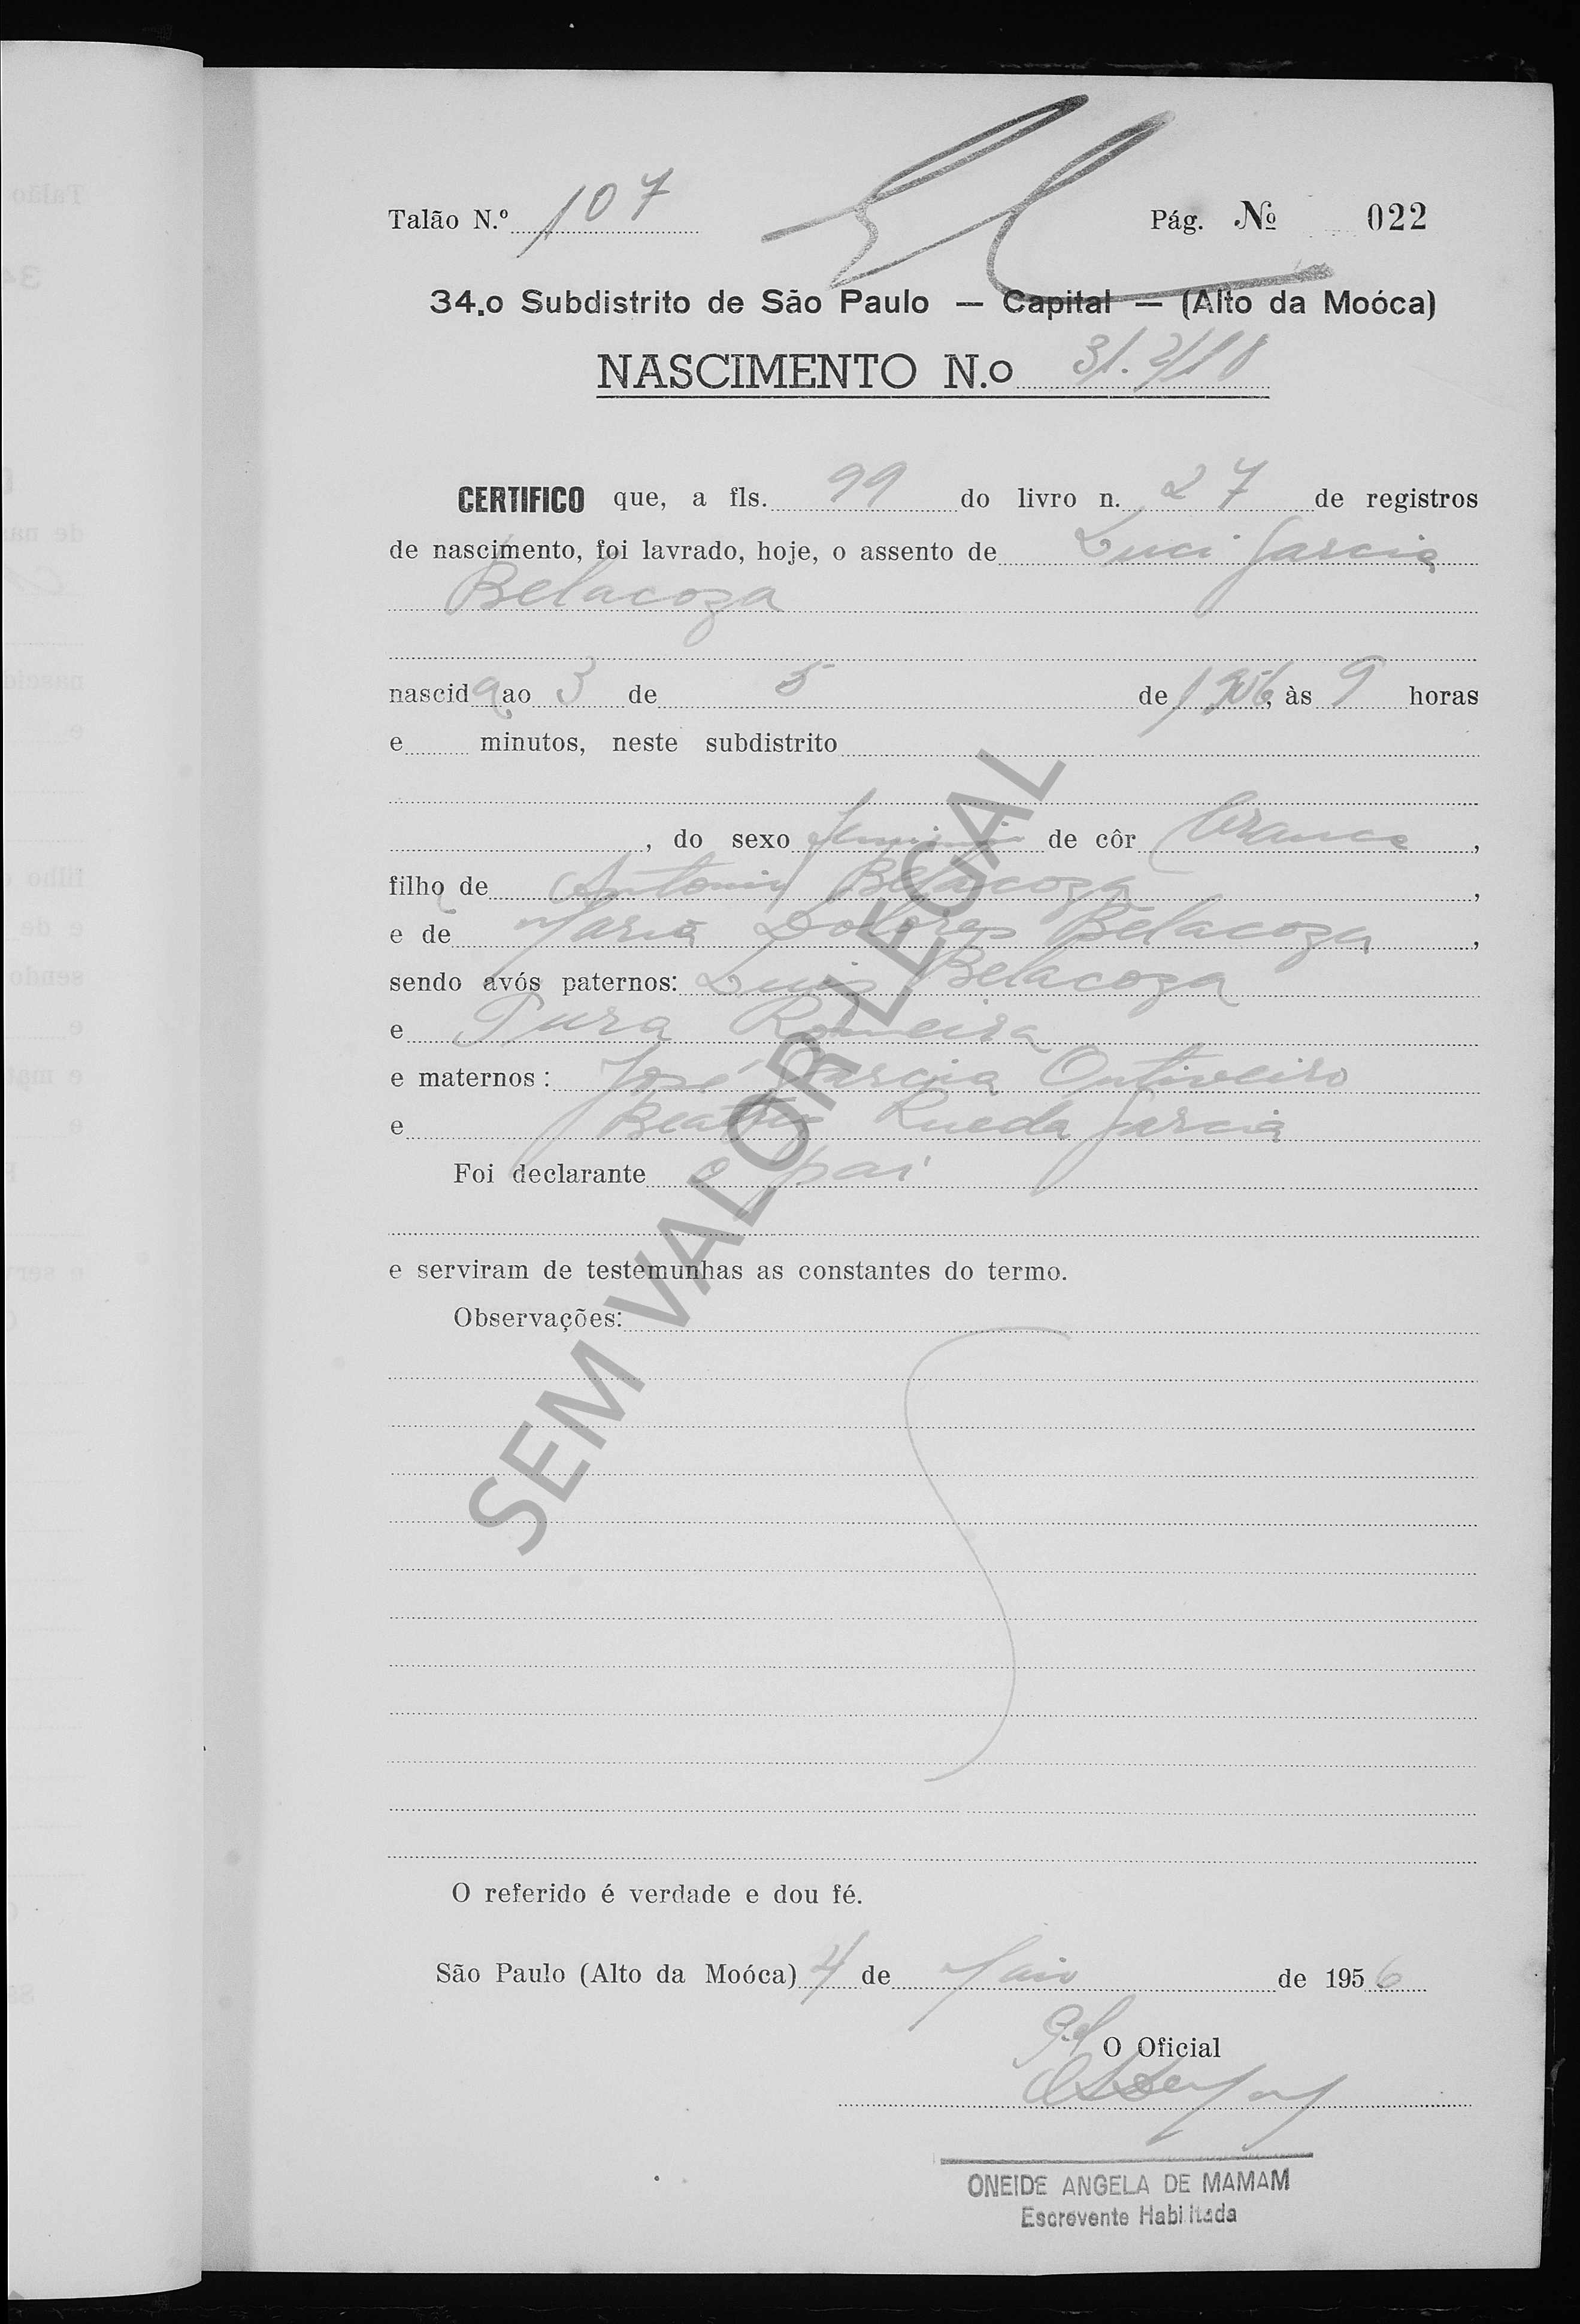 Talão N.º 107
Pág. Nº 022
34.o Subdistrito de São Paulo — Capital — (Alto da Moóca)
NASCIMENTO N.o 31.218
CERTIFICO que, a fls. 99 do livro n. 27 de registros
de nascimento, foi lavrado, hoje, o assento de Luci Garcia
Belacoza
nascida ao 3 de 5 de 1956, às 9 horas
e minutos, neste subdistrito
, do sexo feminino de côr branca,
filha de Antonio Belacoza,
e de Maria Dolores Belacoza,
sendo avós paternos: Luis Belacoza
e Pura Romeira
e maternos: José Garcia Ontiveiro
e Beatriz Rueda Garcia
Foi declarante o pai
e serviram de testemunhas as constantes do termo.
Observações:
O referido é verdade e dou fé.
São Paulo (Alto da Moóca) 4 de Maio de 1956
O Oficial
ONEIDE ANGELA DE MAMAM
Escrevente Habilitada
SEM VALOR LEGAL